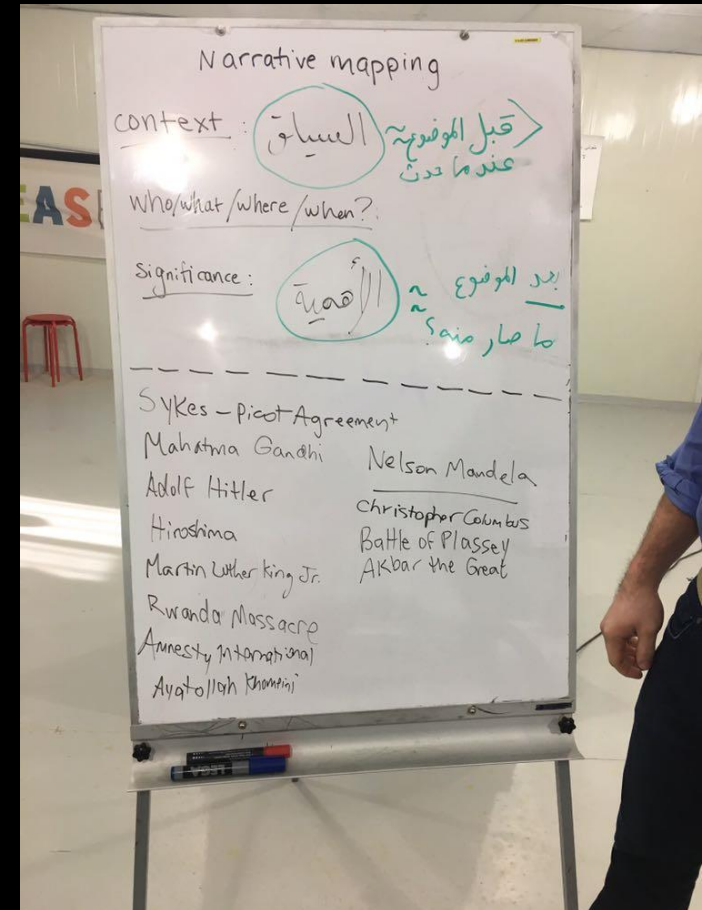 Narrative mapping
context : السياق ~ قبل الموضوع
عندما حدث
who/what/where/when?
significance : الأهمية ~ بعد الموضوع
~ ما صار منه؟
Sykes-Picot Agreement
Mahatma Gandhi
Adolf Hitler
Hiroshima
Martin Luther King Jr.
Rwanda Massacre
Amnesty International
Ayatollah Khomeini
Nelson Mandela
Christopher Columbus
Battle of Plassey
Akbar the Great
EAS